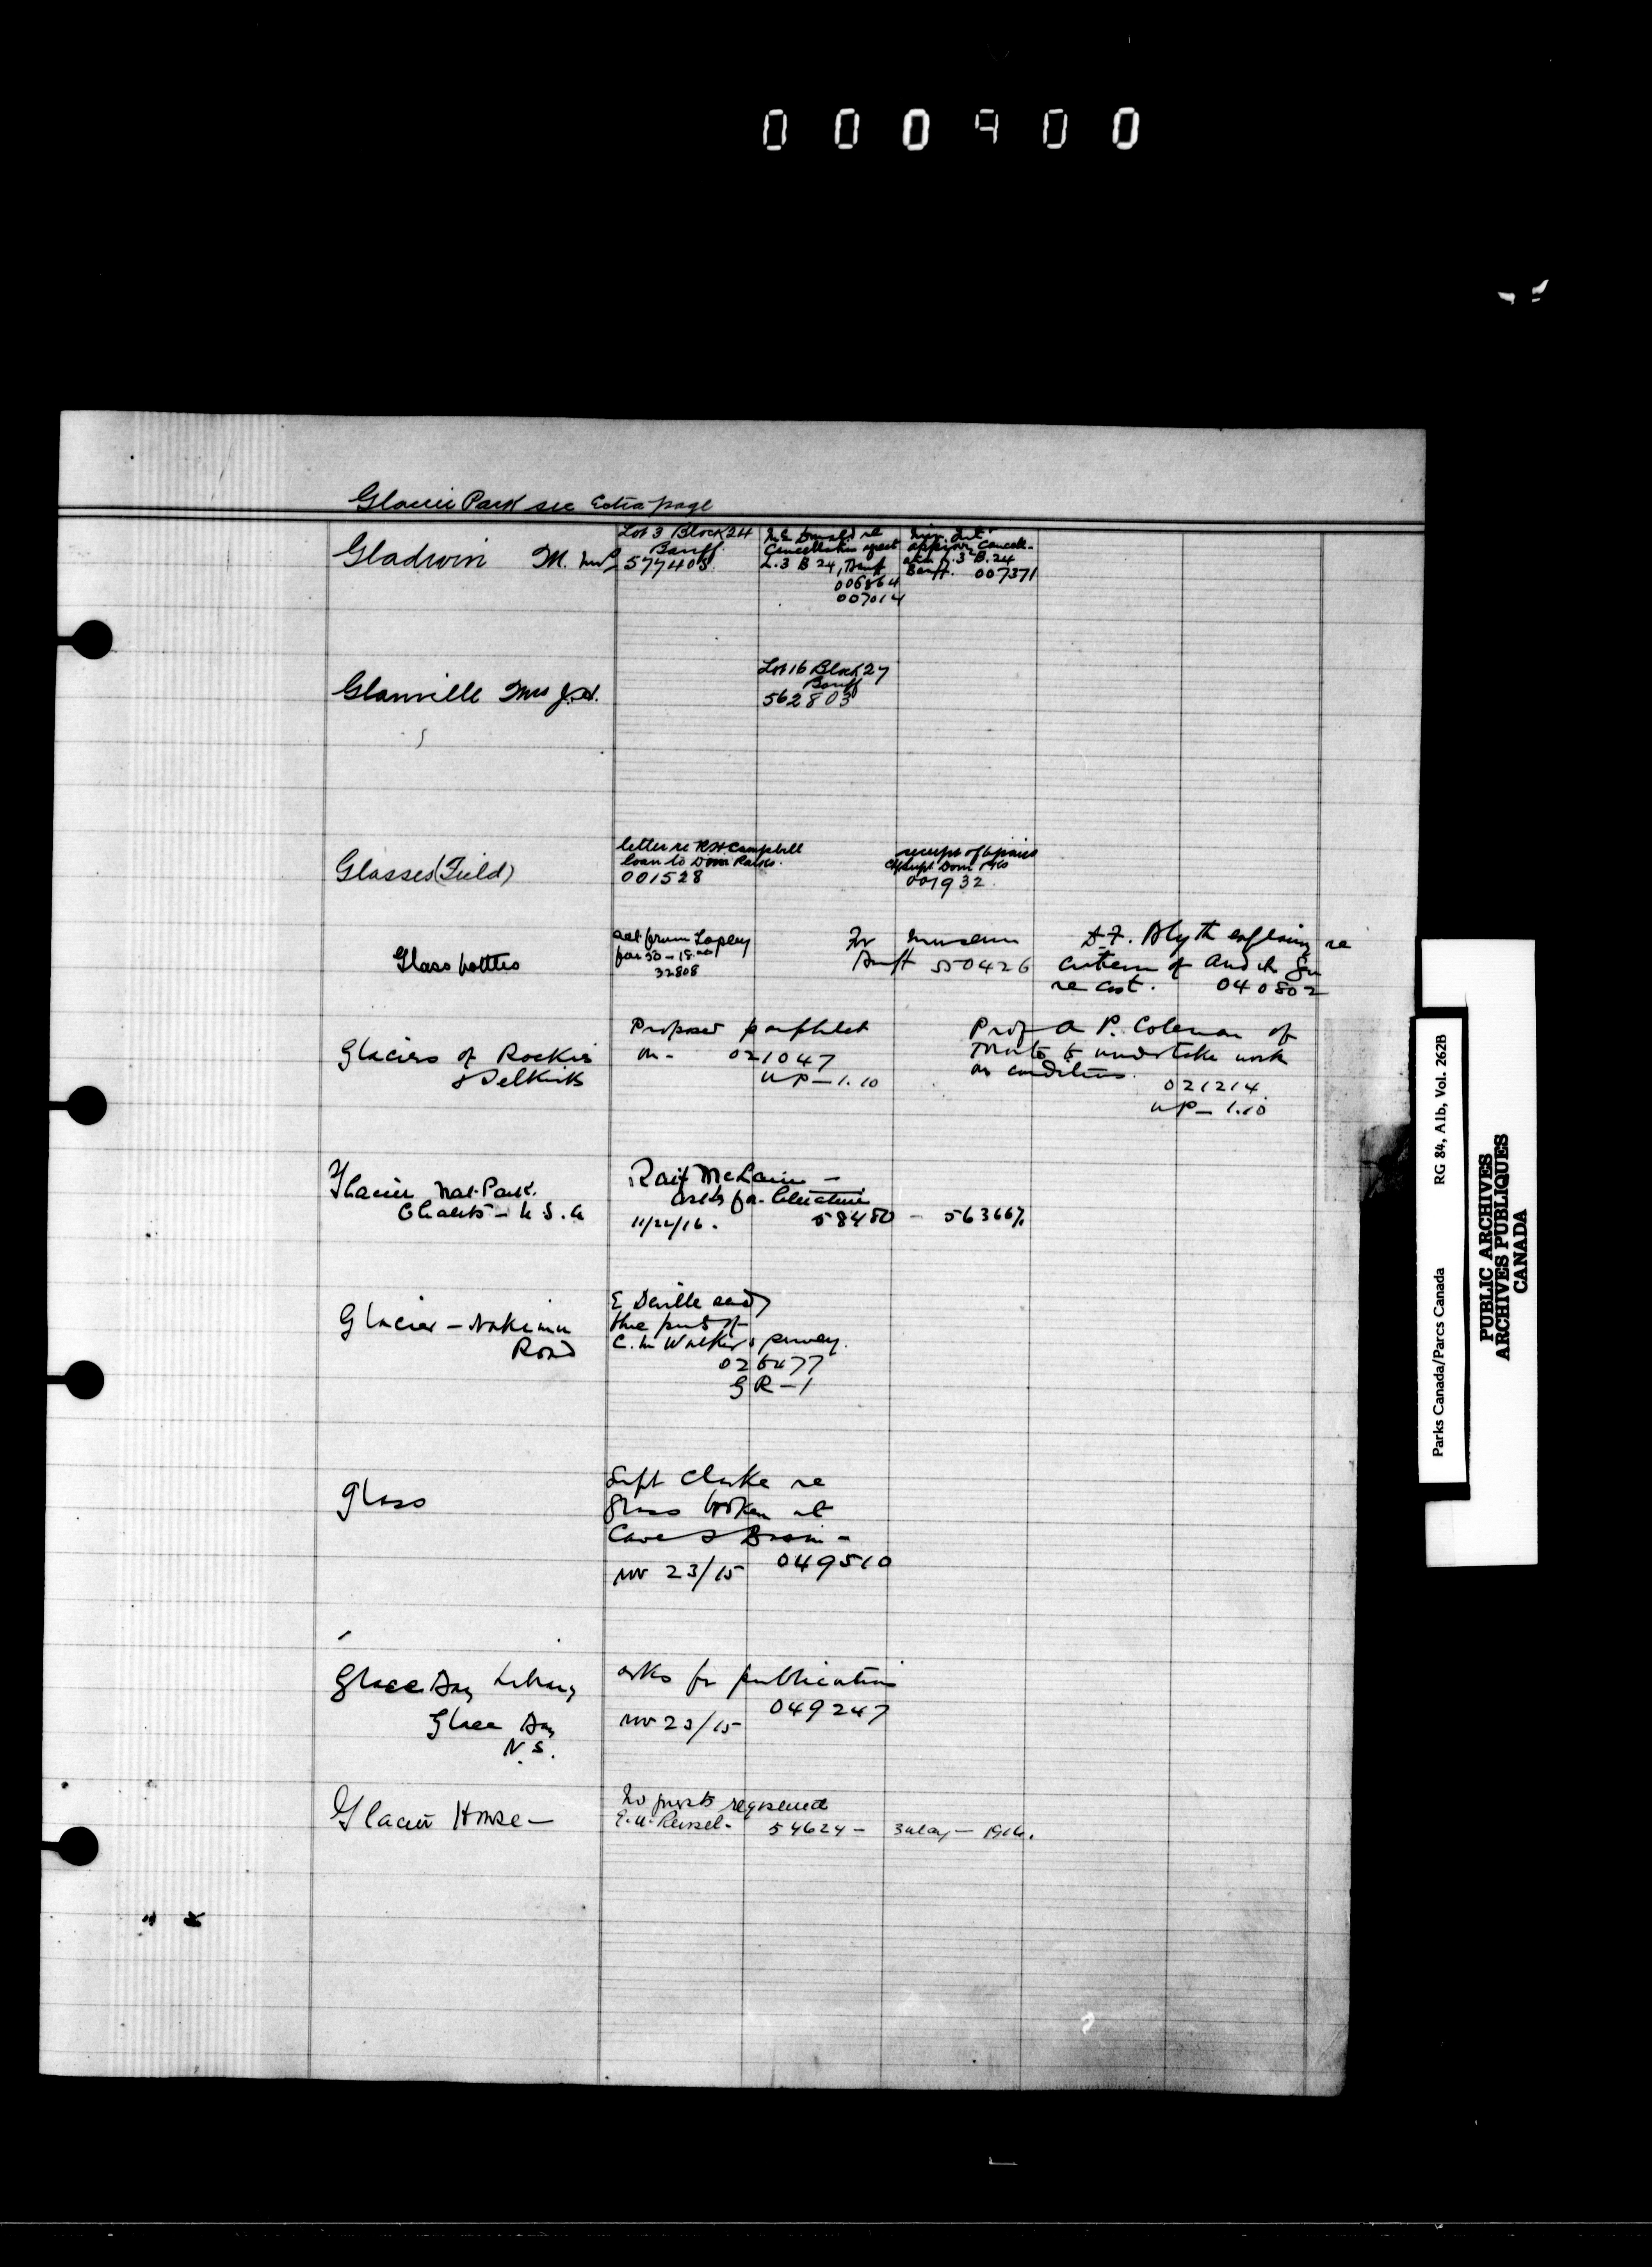 000900
Glacier Park see Extra page
Gladwin M. Mrs
Lot 3 Block 24
Banff.
577405
McDonald re
Cancellation agreet
L. 3 B 24, Banff
006864
007014
approving Cancell-
ation L. 3 B. 24
Banff. 007371
Glanville Mrs J.H.
Lot 16 Block 27
Banff
562803
Glasses (Field)
letter re R.H. Campbell
loan to Dom Parks.
001528
receipt of
Dom Pks
001932
Glass bottles
for 50 - 15.00
32808
For museum
Banff 550426
re
of Audit
re cost. 040802
Glaciers of Rockies
& Selkirks
Proposed pamphlet
on - 021047
UP - 1.10
Prof A P. Coleman of
Toronto to undertake work
on conditions.
021214
UP - 1.10
Glacier Nat. Park.
Chalets - U.S.A
McLain -
asks for literature
11/22/16. 58480 - 56366
Glacier - Nakimu
Road
E Deville sends
three prints of
C. M Walker's survey.
GR - 1
Glass
Supt Clarke re
glass broken at
Cave & Basin -
Nov 23/15 049510
Glace Bay Library
Glace Bay
N.S.
asks for publications
Nov 23/15 049247
Glacier House -
No guests registered
54624 - 1916.
Parks Canada/Parcs Canada RG 84, A1b, Vol. 262B
PUBLIC ARCHIVES
ARCHIVES PUBLIQUES
CANADA